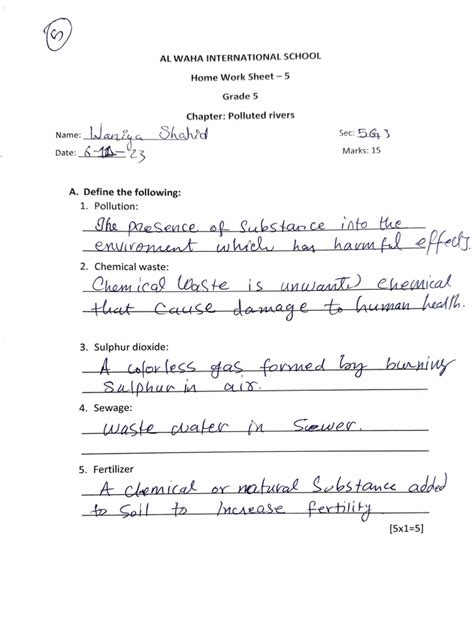 5
AL WAHA INTERNATIONAL SCHOOL
Home Work Sheet – 5
Grade 5
Chapter: Polluted rivers
Name: Haniya Shahid Sec: 5G3
Date: 6-11-23 Marks: 15
A. Define the following:
1. Pollution:
The presence of substance into the
enviroment which has harmful effects.
2. Chemical waste:
Chemical waste is unwanted chemical
that cause damage to human health.
3. Sulphur dioxide:
A colorless gas formed by burning
Sulphur in air.
4. Sewage:
Waste water in Sewer.
5. Fertilizer
A chemical or natural Substance added
to Soil to increase fertility
[5x1=5]